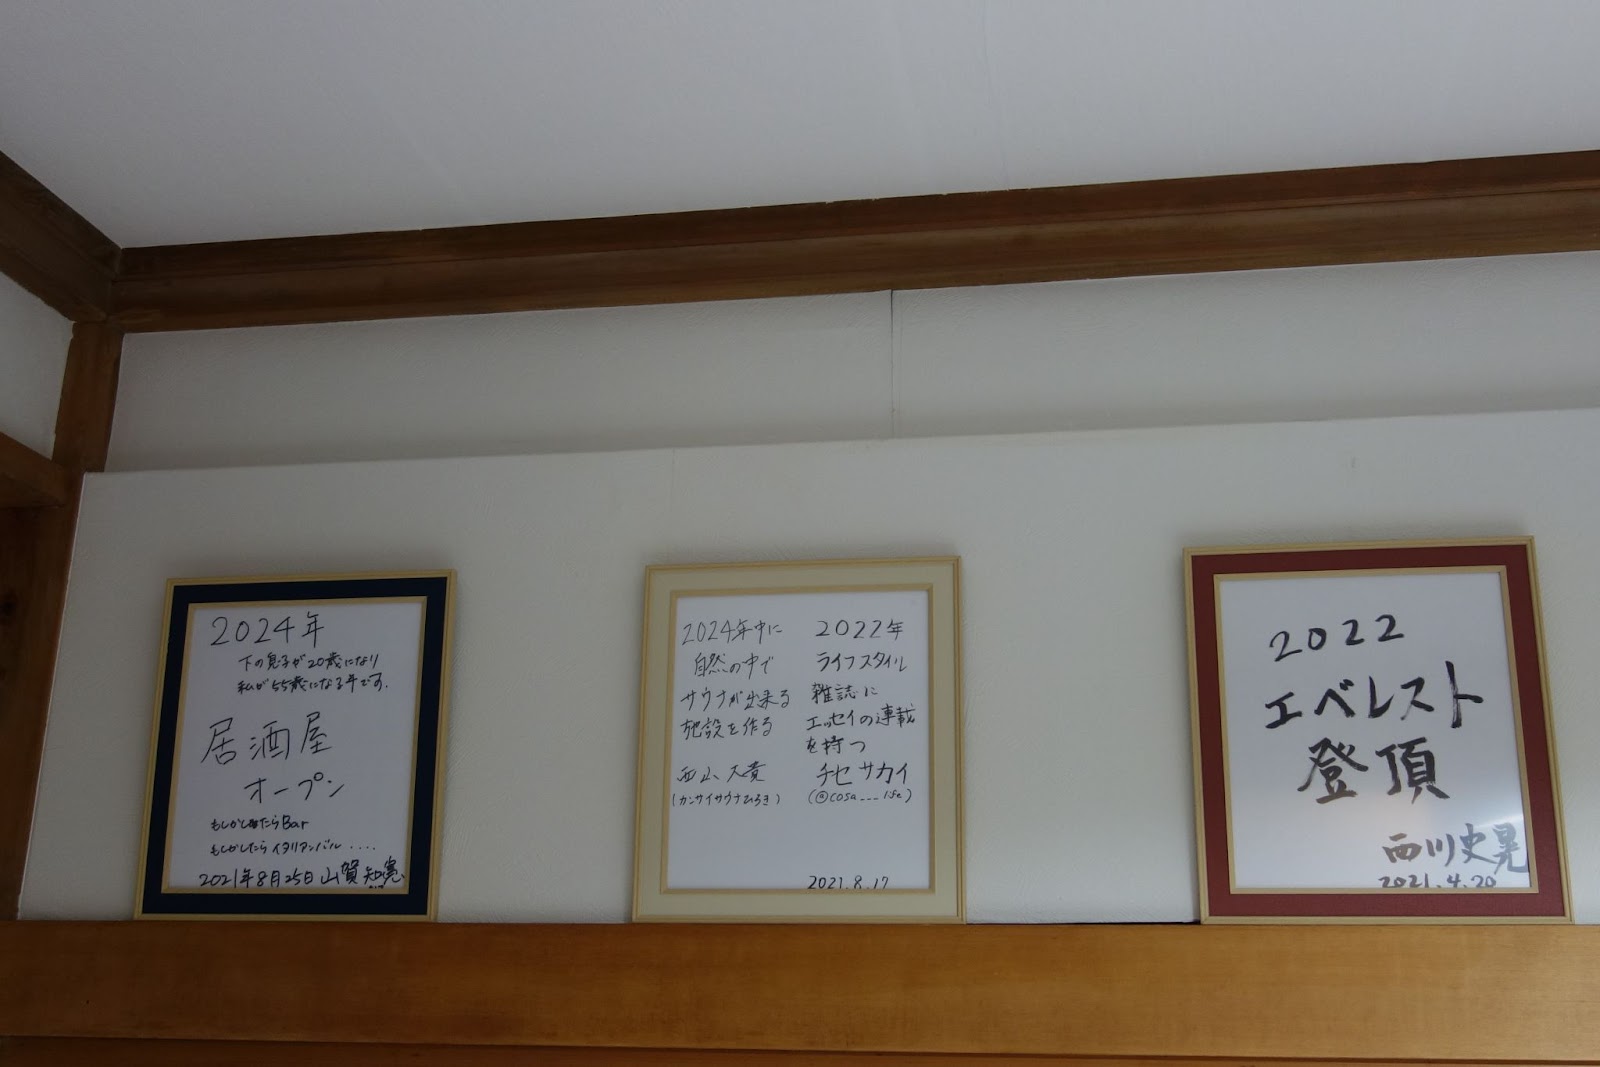 2024年
下の息子が20歳になり
私が55歳になる年です。
居酒屋
オープン
もしかしたらBar
もしかしたらイタリアンバル....
2021年8月25日 山賀 知憲
2024年中に
自然の中で
サウナが出来る
施設を作る
西山 大貴
(カンサイサウナひろき)
2022年
ライフスタイル
雑誌に
エッセイの連載
を持つ
チセ サカイ
(@cosa___life)
2021.8.17
2022
エベレスト
登頂
西川史晃
2021.4.20